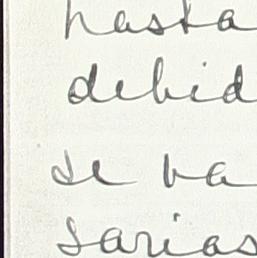 hasta
debid
se va
sarias